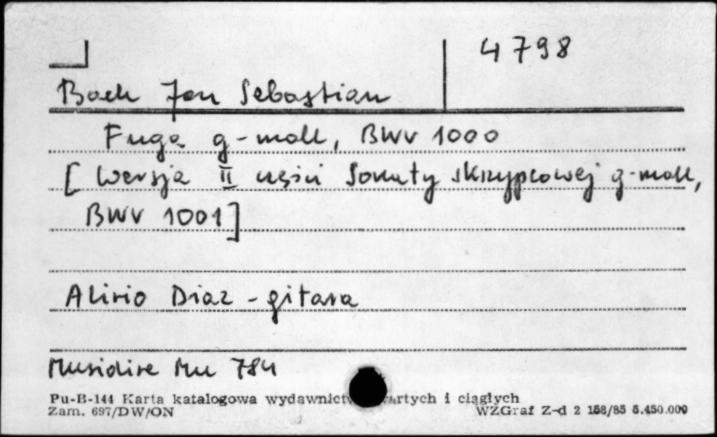 4798
Bach Jan Sebastian
Fuga g-moll, BWV 1000
[Wersja II części Sonaty skrzypcowej g-moll,
BWV 1001]
Alirio Diaz - gitara
Musidisc Mu 784
Pu-B-144 Karta katalogowa wydawnictw zwartych i ciągłych
Zam. 697/DW/ON WZGraf Z-d 2 158/85 5.450.000